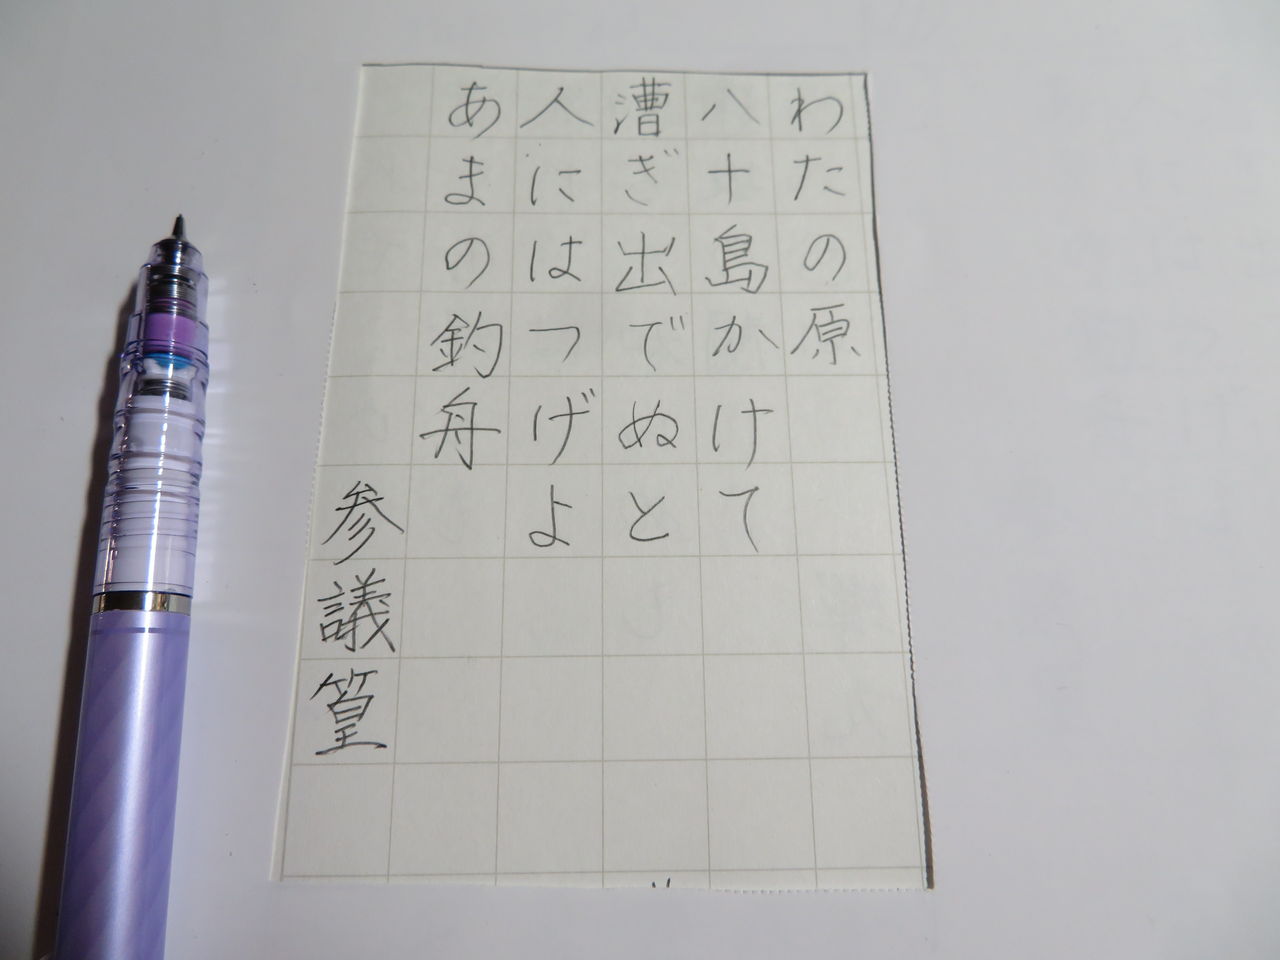 わたの原
八十島かけて
漕ぎ出でぬと
人にはつげよ
あまの釣舟
参議篁